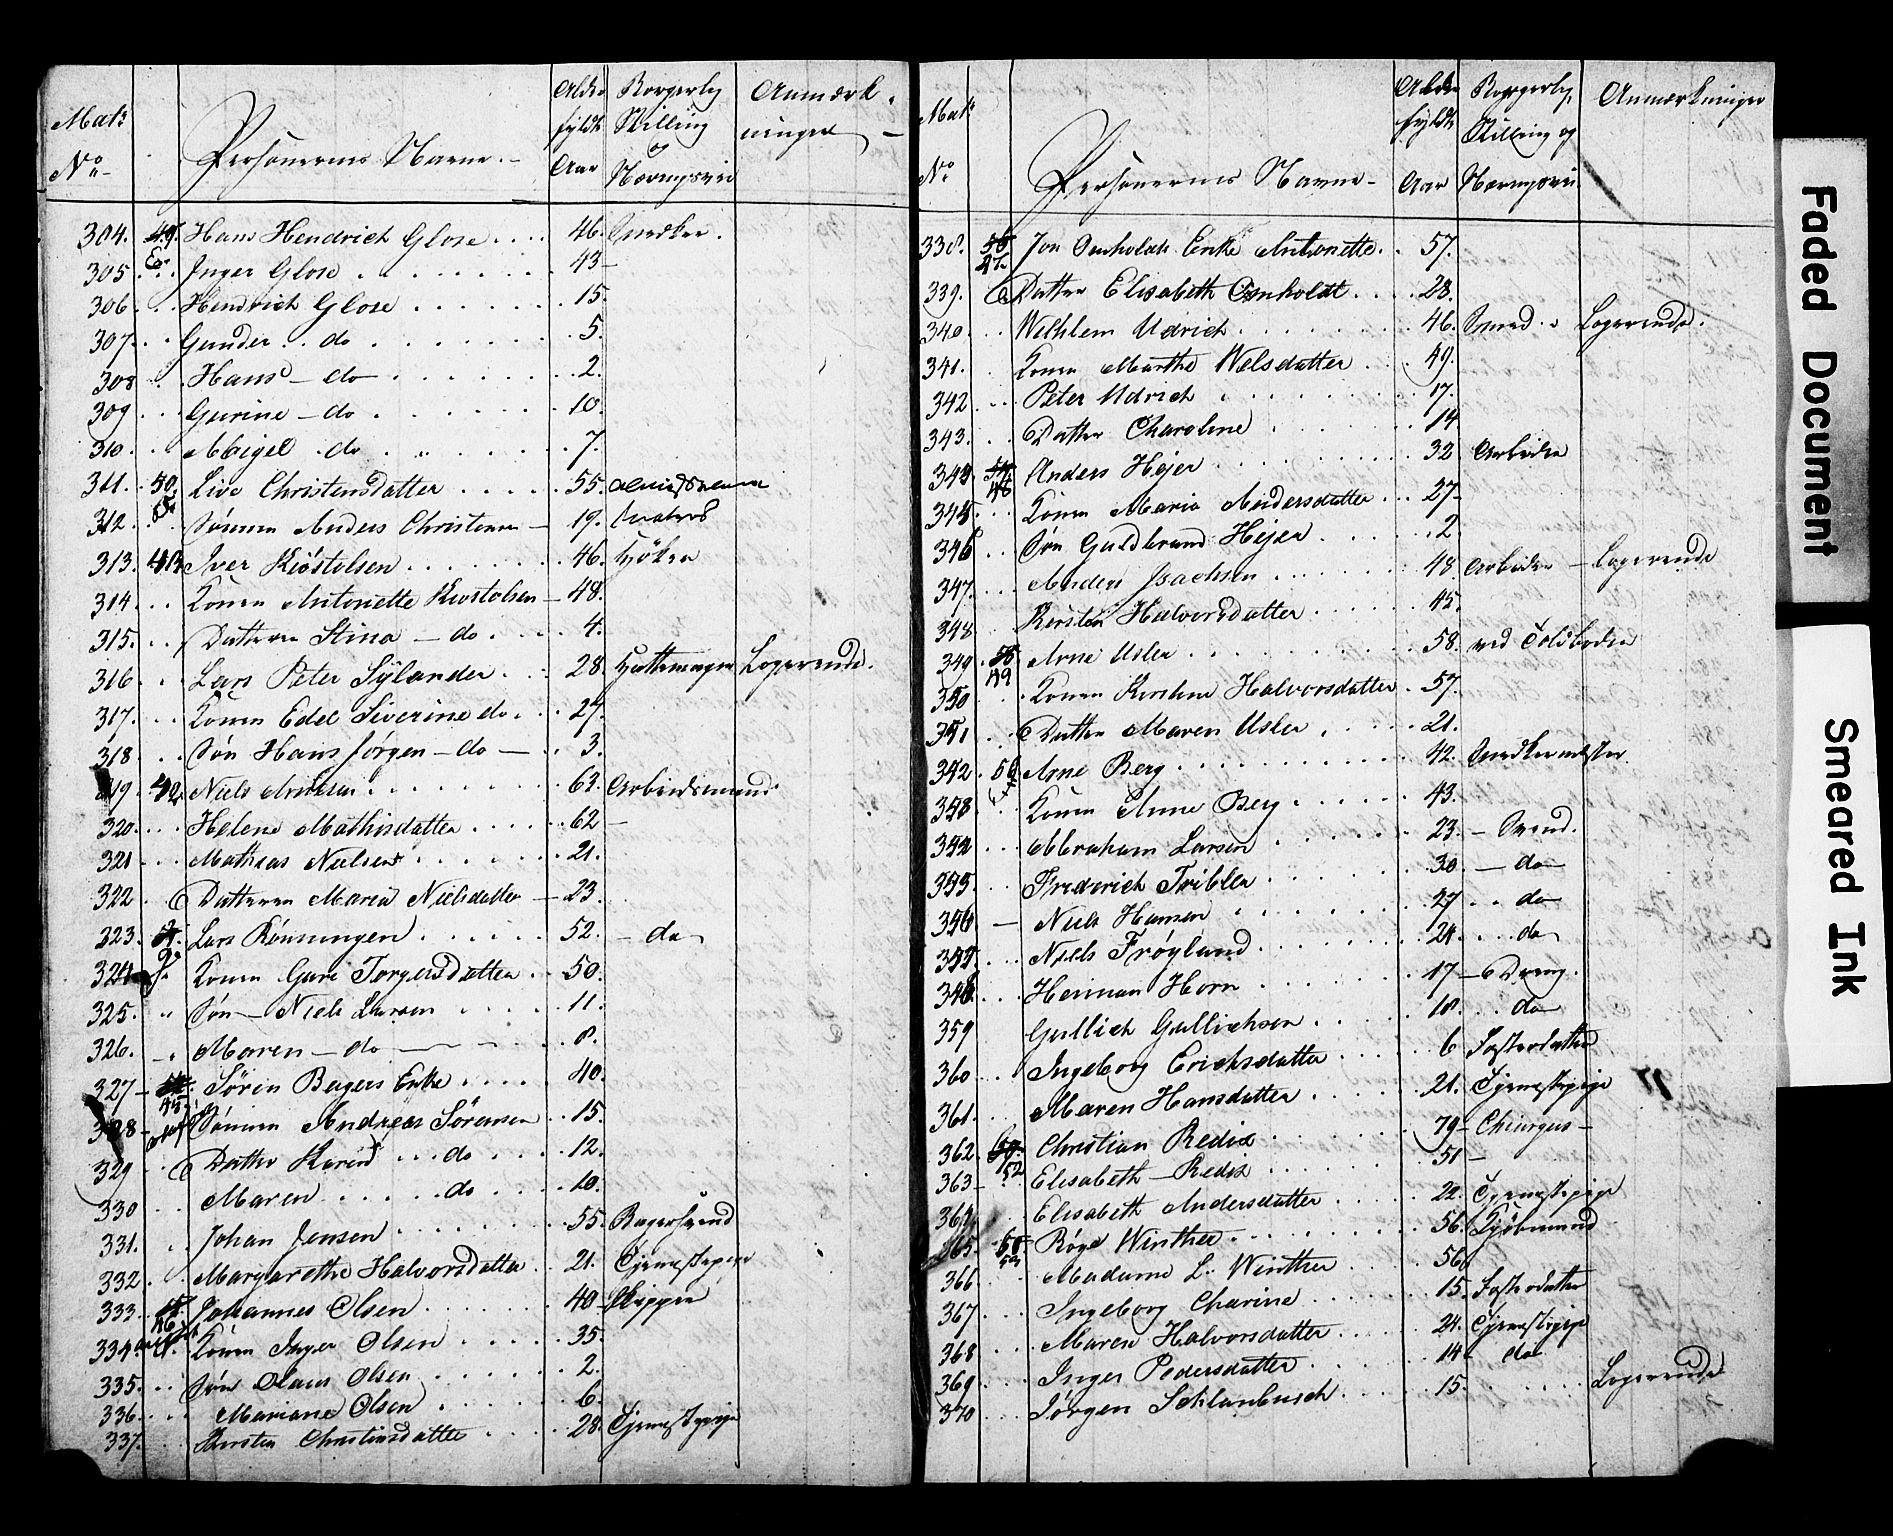 Matr No Personernes Navne Alder fyldt Aar Borgerlig Stilling og Næringsvei Anmærkninger
304. 49. Hans Hendrich Glose 46. Snedker.
305 Inger Glose 43
306. Hendrich Glose 15.
307. Gunder do 5.
308 Hans do 2.
309 Gurine do 10.
310 Abigel do 7.
311. 50. Live Christensdatter 55.
312. Sønnen Anders Christensen 19. Matros
313. Iver Kiöstolsen 46. Höker
314 Konen Antoinette Kiostolsen 48.
315. Datteren Stina do 4.
316 Lars Peter Sylander 28. Hattemager Logerende.
317. Konen Edel Siverine do. 27.
318 Søn Hans Jørgen do 3.
319 42. Niels 63. Arbeidsmand
320. Helene Mathisdatter 62
321 Mathias Nielsen 21.
322 Datteren Maria Nielsdatter 23.
323. Lars Rönningen 52. do
324 Konen Guri Torgersdatter 50.
325. Søn Niels Larsen 11.
326. Maren do 8.
327 Sören Bagers Enke 40.
328 Sønnen Andreas Sörensen 15.
329 Datter Karen do 12.
330 Maren do 10.
331. Johan Jensen 55. Bagersvend
332. Margarethe Halvorsdatter 21. Tjenestepige
333. Johannes Olsen 40 Skipper
334 Konen Inger Olsen 35.
335. Søn Olaus Olsen 2.
336. Mariane Olsen 6.
337. Kersten Christensdatter 28. Tjenestepige
Matr No Personernes Navne Alder fyldt Aar Borgerlig Stilling og Næringsvei Anmærkninger
338. Jon Omholdt Enke Antonette 57.
339. Datter Elisabeth Omholdt 28.
340. Wilhlem Udrich 46. Smed Logerende.
341. Konen Marthe Nelsdatter 49.
342 Peter Udrich 17.
343. Datter Charoline 14
344 Anders Hejer 32 Arbeider
345 Konen Maria Andersdatter 27
346 Søn Guldbrand Hejer 2
347. Anders Isachsen 48 Arbeider Logerende
348 Kersten Halvorsdatter 45.
349 49 Arne Usler 58. ved Toldboden
350 Konen Kirstine Halvorsdatter 57.
351 Datter Maren Usler 21.
352 Arne Berg 42. Snedkermester.
353 Konen Anne Berg 43.
354 Abraham Larsen 23. Svend.
355 Frederich Tribler 30 do
356 Niels Hansen 27 do
357 Niels Frøyland 24. do
358 Herman Horn 17 Dreng.
359 Gullich Gullichsen 18. do
360 Ingeborg Erichsdatter 6 Fosterdatter
361 Maren Hansdatter 21. Tjenestepige
362 52 Christian Redix 79 Chirurgus
363 Elisabeth Redix 51
364 Elisabeth Andersdatter 22. Tjenestepige
365 Röge Winther 56. Kjöbmand
366 Madame L. Winther 56
367 Ingeborg Charine 15. Fosterdatter
368 Maren Halvorsdatter 24. Tjenestepige
369 Inger Pedersdatter 14 do
370 Jørgen Schlanbusch 15. Logerende
Faded Document
Smeared Ink